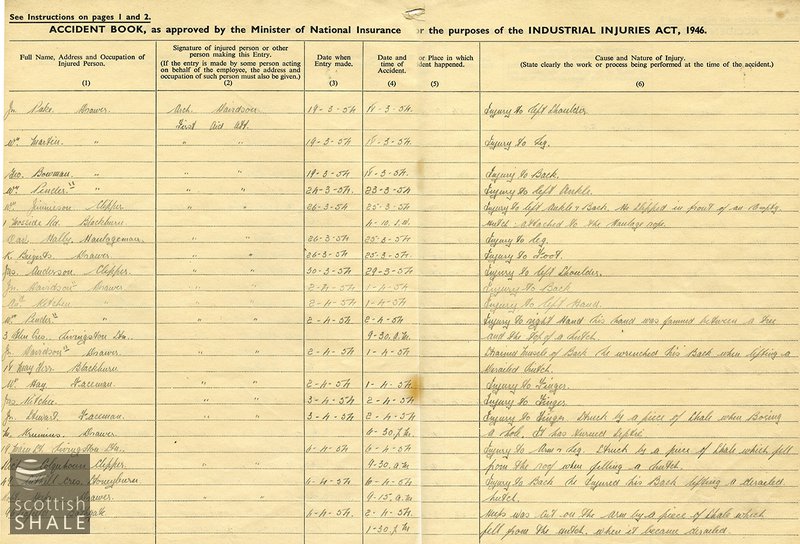 See Instructions on pages 1 and 2.
ACCIDENT BOOK, as approved by the Minister of National Insurance or the purposes of the INDUSTRIAL INJURIES ACT, 1946.
Full Name, Address and Occupation of Injured Person. (1)
Signature of injured person or other person making this Entry. (If the entry is made by some person acting on behalf of the employee, the address and occupation of such person must also be given.) (2)
Date when Entry made. (3)
Date and time of Accident. (4)
or Place in which ent happened. (5)
Cause and Nature of Injury. (State clearly the work or process being performed at the time of the accident.) (6)
Jn Drawer Arch. Davidson 19-3-54 18-3-54. Injury to left Shoulder.
First Aid Att.
Wm Martin " " " 19-3-54 18-3-54. Injury to Leg.
Geo. Bowman " " " 19-3-54 18-3-54. Injury to Back.
Wm Pender " " " 24-3-54. 23-3-54 Injury to left Ankle.
Wm Jamieson Clipper " " 26-3-54 25-3-54 Injury to left Ankle & Back. He slipped in front of an empty
Blackburn 4-10. hutch: attached to the haulage rope.
Haulageman " " 26-3-54 25-3-54 Injury to Leg.
K. Drawer " " 26-3-54 25-3-54 Injury to Foot.
Jas Anderson Clipper " " 30-3-54 29-3-54 Injury to left Shoulder.
Jn Davidson Drawer " " 2-4-54 1-4-54 Injury to Back
Kitchen " " 2-4-54 1-4-54 Injury to left Hand.
Wm Pender " " " 2-4-54 2-4-54 Injury to right Hand his hand was jammed between a tree
3 Glen Cres. Livingston Stn. 9-30. and the top of a hutch.
Jn Davidson Drawer " " 2-4-54 1-4-54 Strained muscle of Back he wrenched his Back when lifting a
Blackburn derailed hutch.
Wm Hay Faceman. " " 2-4-54 1-4-54 Injury to Finger.
Jas Kitchen " " 3-4-54 2-4-54 Injury to Finger
Jn Stewart Faceman. " " 3-4-54 2-4-54 Injury to Finger Struck by a piece of Shale when Boring
Drawer 6-30 a hole. It has turned septic.
Livingston Stn. 6-4-54 6-4-54 Injury to Arm & Leg. Struck by a piece of Shale which fell
Colquhoun Clipper " " 9-30 a.m from the roof when filling a hutch.
Cres. Stoneyburn 6-4-54 6-4-54 Injury to Back He injured his Back lifting a derailed
Drawer " " 9-15. a.m hutch.
6-4-54 2-4-54 was cut on the arm by a piece of Shale which
1-30 fell from the hutch, when it became derailed.
scottish
SHALE